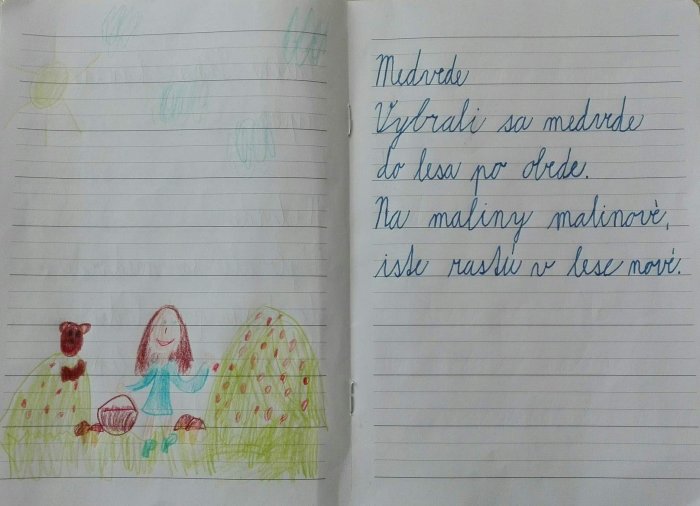 Medvede
Vybrali sa medvede
do lesa po obede.
Na maliny malinové,
iste rastú v lese nové.